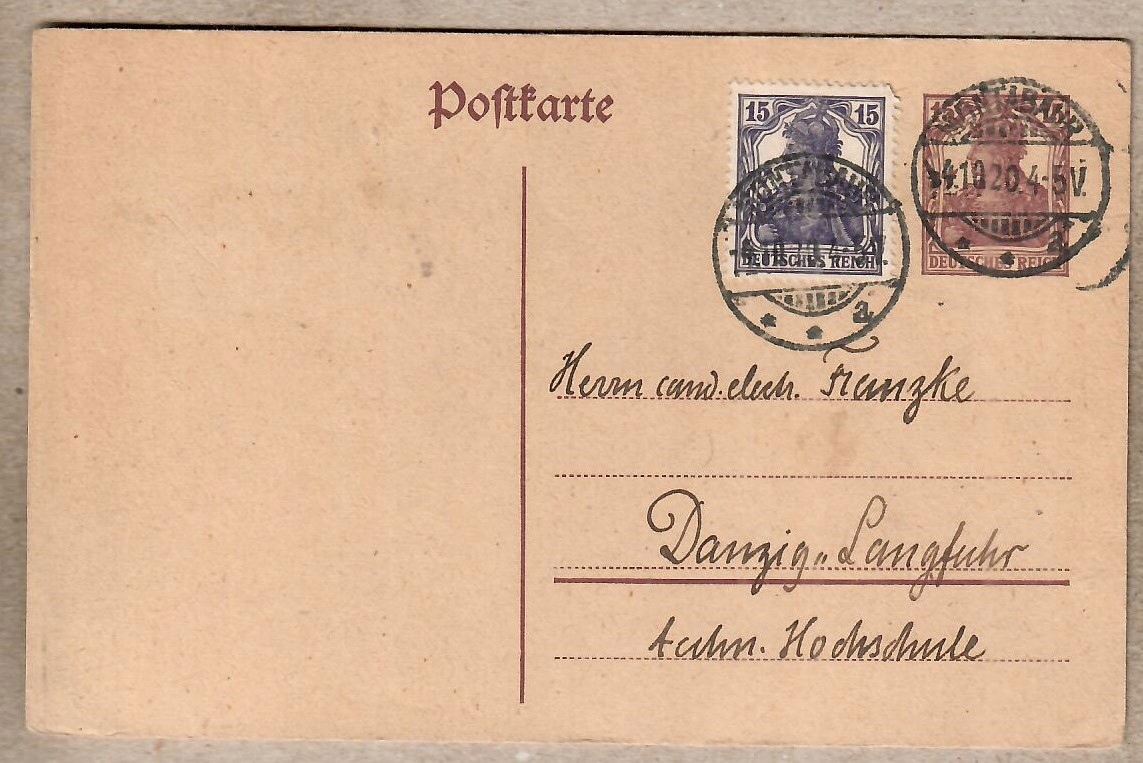 Postkarte
15 15
DEUTSCHES REICH
15
DEUTSCHES REICH
4.10 20. 4-5V.
a
a
Herrn cand. elech. Franzke
Danzig-Langfuhr
techn. Hochschule